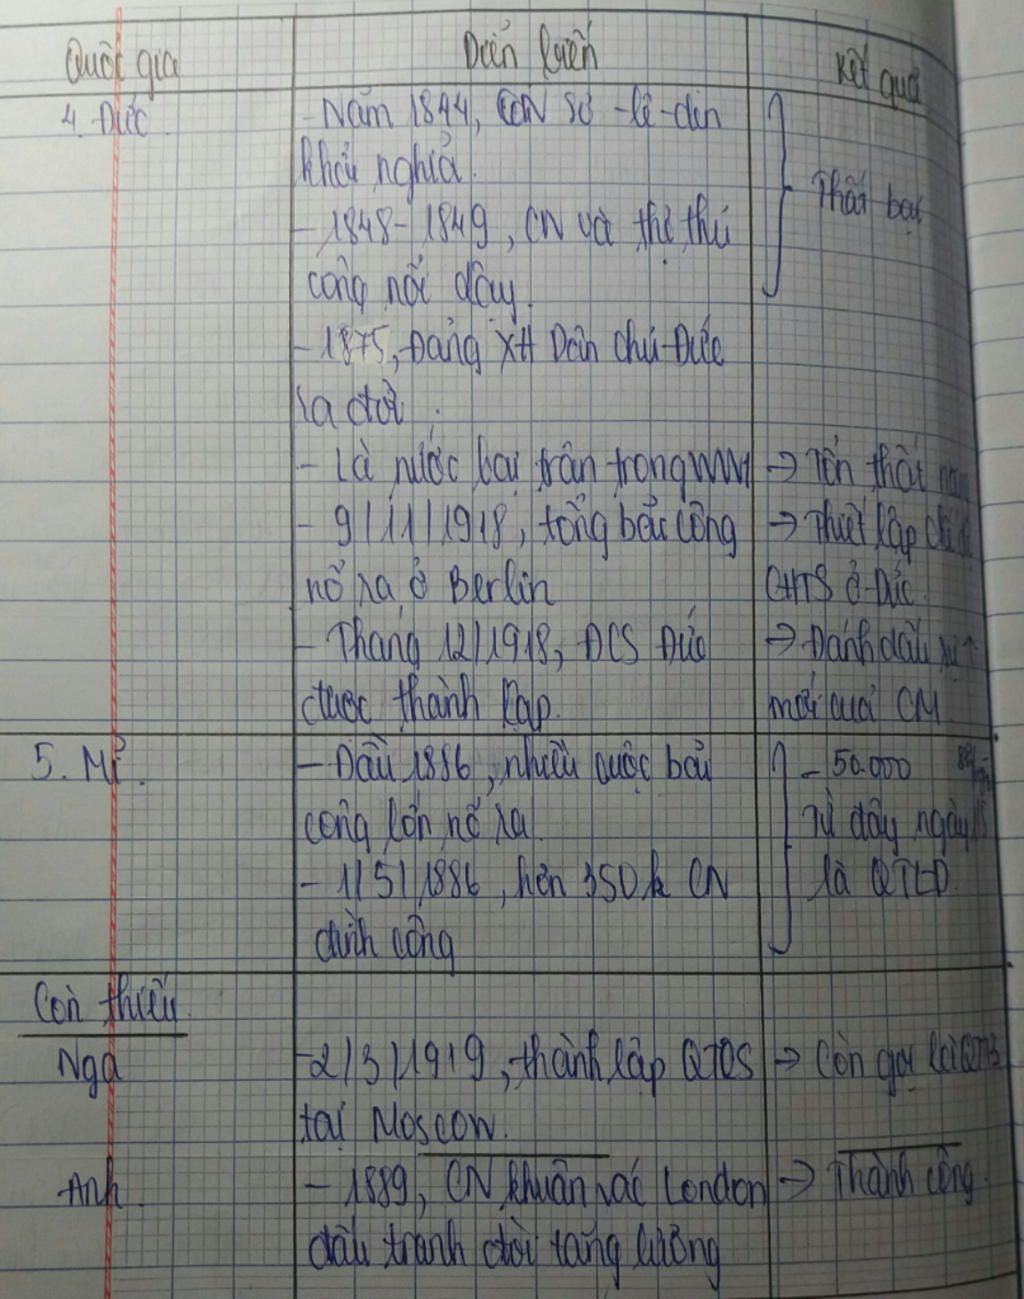 Quốc gia Diễn biến Kết quả
4. Đức. - Năm 1844, CN Sơ-lê-din
khởi nghĩa. Thất bại
- 1848-1849, CN và thợ thủ
công nổi dậy.
- 1875, Đảng XH Dân chủ Đức
ra đời.
- Là nước bại trận trong WW1 → Tổn thất
- 9/11/1918, tổng bãi công → Thiết lập
nổ ra ở Berlin ở Đức.
- Tháng 12/1918, ĐCS Đức → Đánh dấu
được thành lập. mới của CM
5. Mĩ. - Đầu 1886, nhiều cuộc bãi - 50.000
công lớn nổ ra. Từ đây ngày 1/5
- 1/5/1886, hơn 350k CN là QTLĐ.
đình công
Còn thiếu
Nga - 2/3/1919, thành lập QTCS → Còn gọi là QT3
tại Moscow.
Anh. - 1889, CN khuân vác London → Thành công.
đấu tranh đòi tăng lương